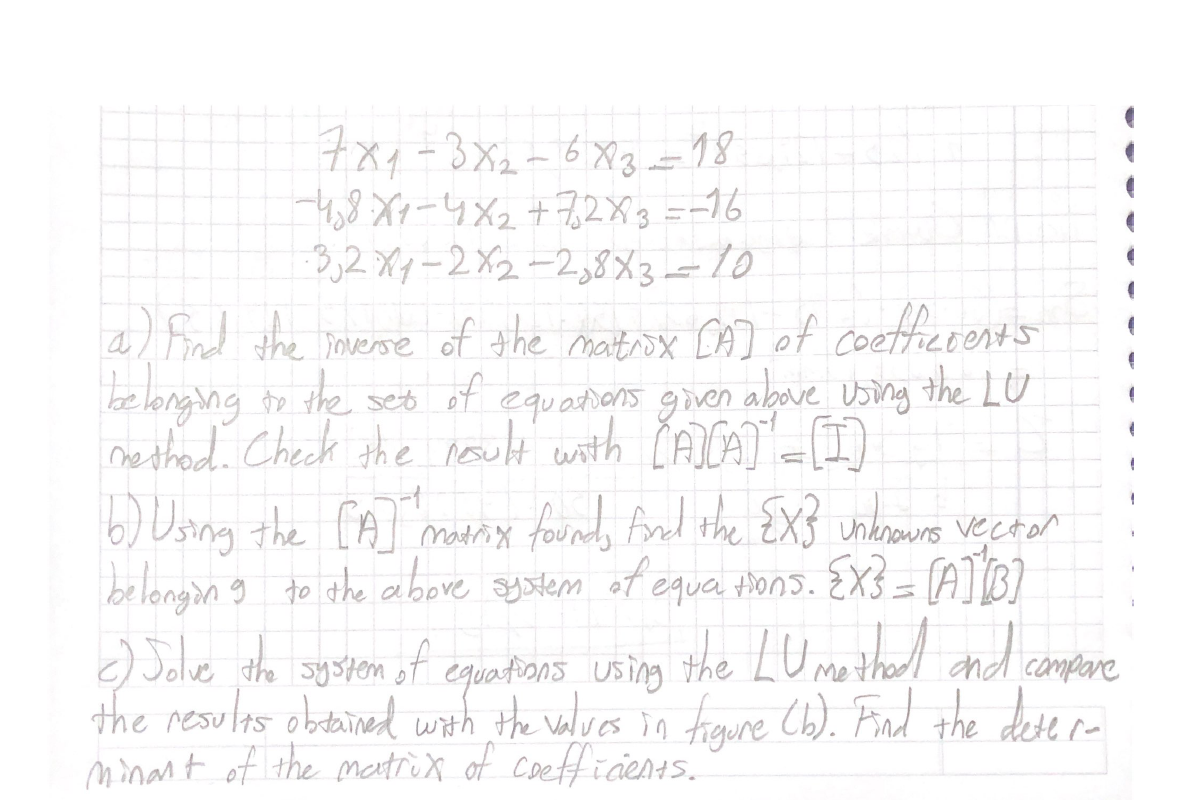 7x1 - 3x2 - 6x3 = 18
-4,8x1 - 4x2 + 7,2x3 = -16
3,2x1 - 2x2 - 2,8x3 = 10
a) Find the inverse of the matrix [A] of coefficients
belonging to the set of equations given above using the LU
method. Check the result with [A][A]⁻¹ = [I]
b) Using the [A]⁻¹ matrix found, find the {X} unknowns vector
belonging to the above system of equations. {X} = [A]⁻¹[B]
c) Solve the system of equations using the LU method and compare
the results obtained with the values in figure (b). Find the deter-
minant of the matrix of coefficients.